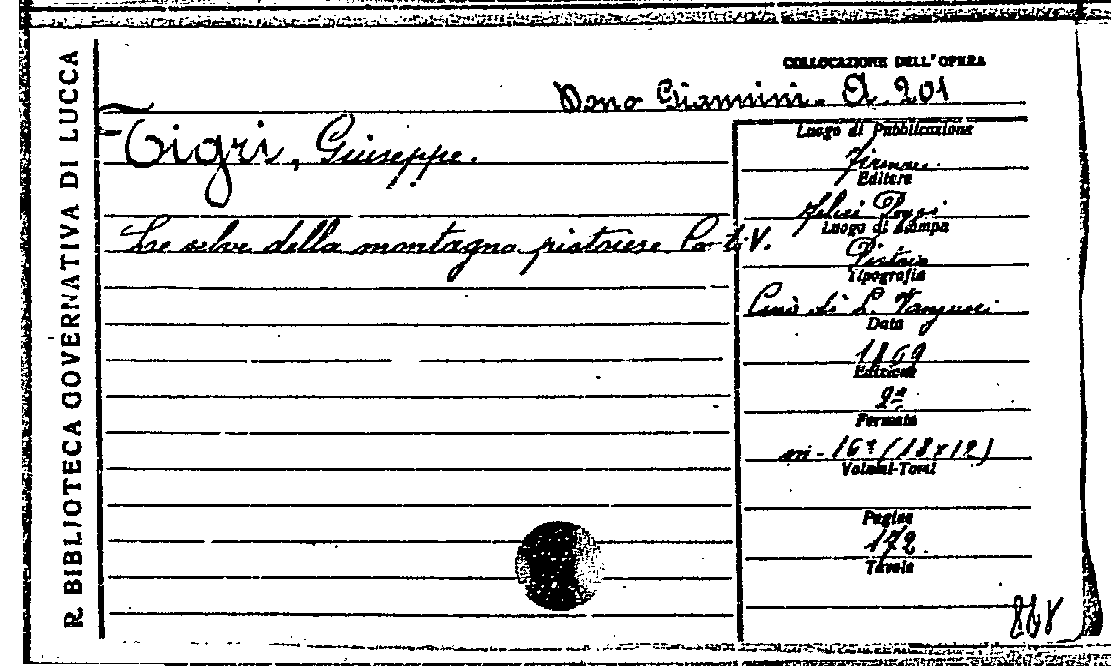 R. BIBLIOTECA GOVERNATIVA DI LUCCA
COLLOCAZIONE DELL'OPERA
Dono Giannini. A. 201
Tigri, Giuseppe.
Le selve della montagna pistoiese. Canti V.
Luogo di Pubblicazione
Firenze.
Editore
Felice Paggi
Luogo di Stampa
Pistoia
Tipografia
Cino di
Data
1869
Edizione
2ª
Formato
in-16° (18x12)
Volumi-Tomi
Pagine
172
Tavole